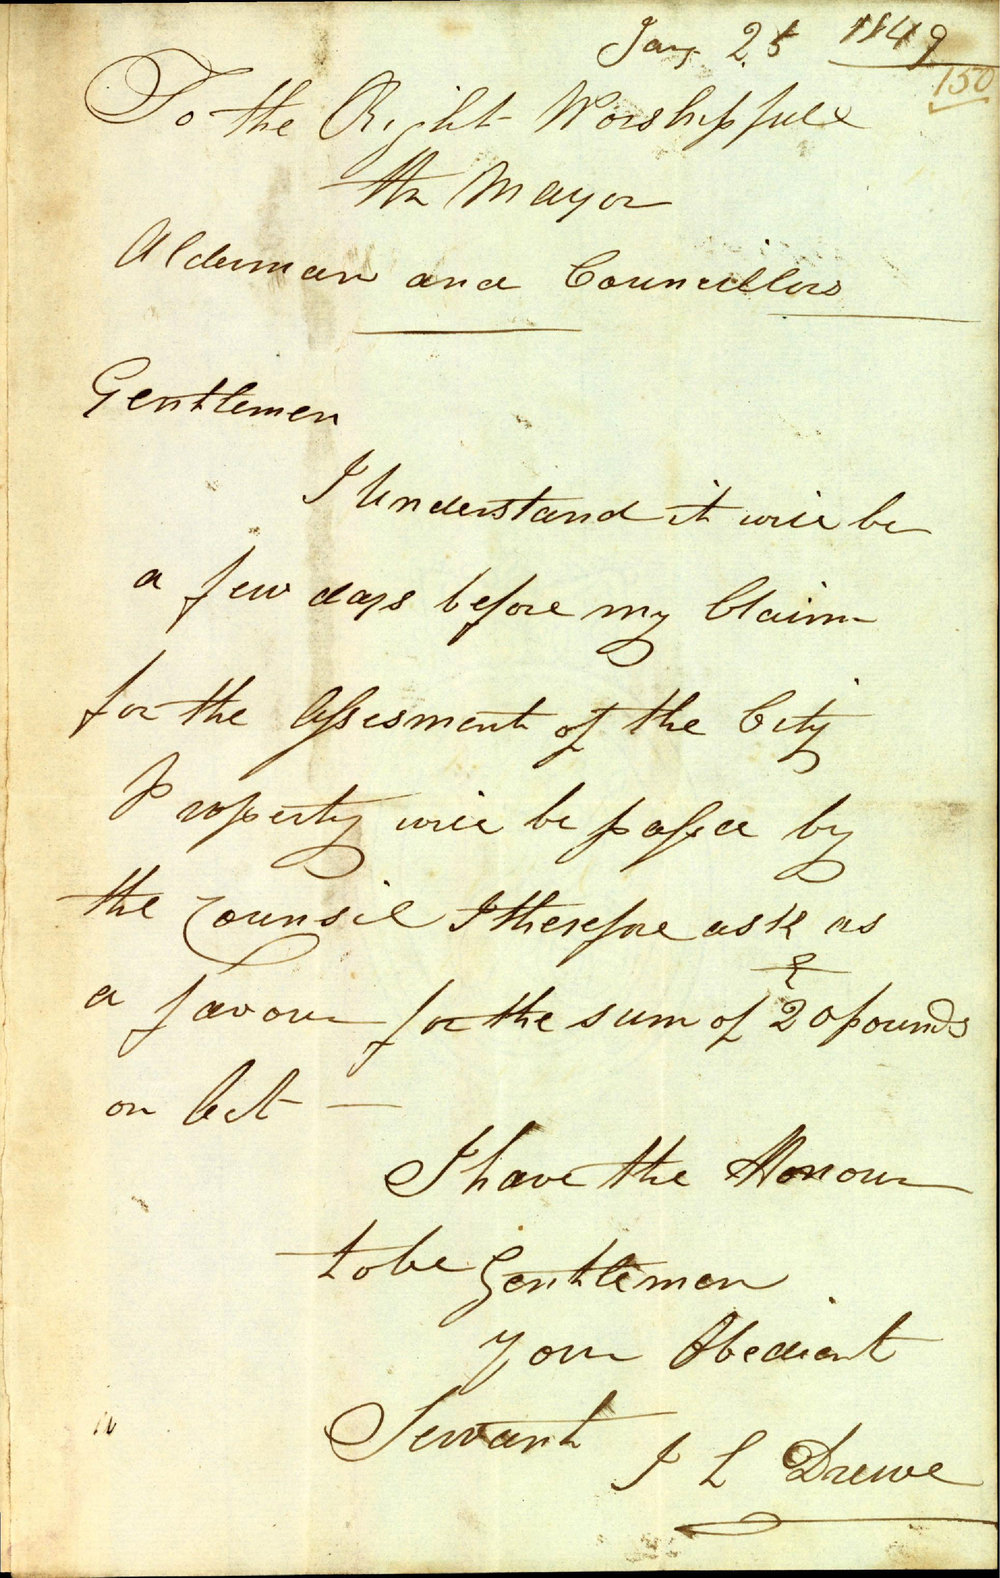 Jany 25 1849
150
To the Right Worshipfull
the Mayor
Alderman and Councillors
Gentlemen
I Understand it will be
a few days before my Claim
for the Assesment of the City
Property will be passed by
the Counsil I therefore ask as
a favour for the sum of £20 pounds
on Act —
I have the Honour
to be Gentlemen
Your Obediant
Servant J L Drewe